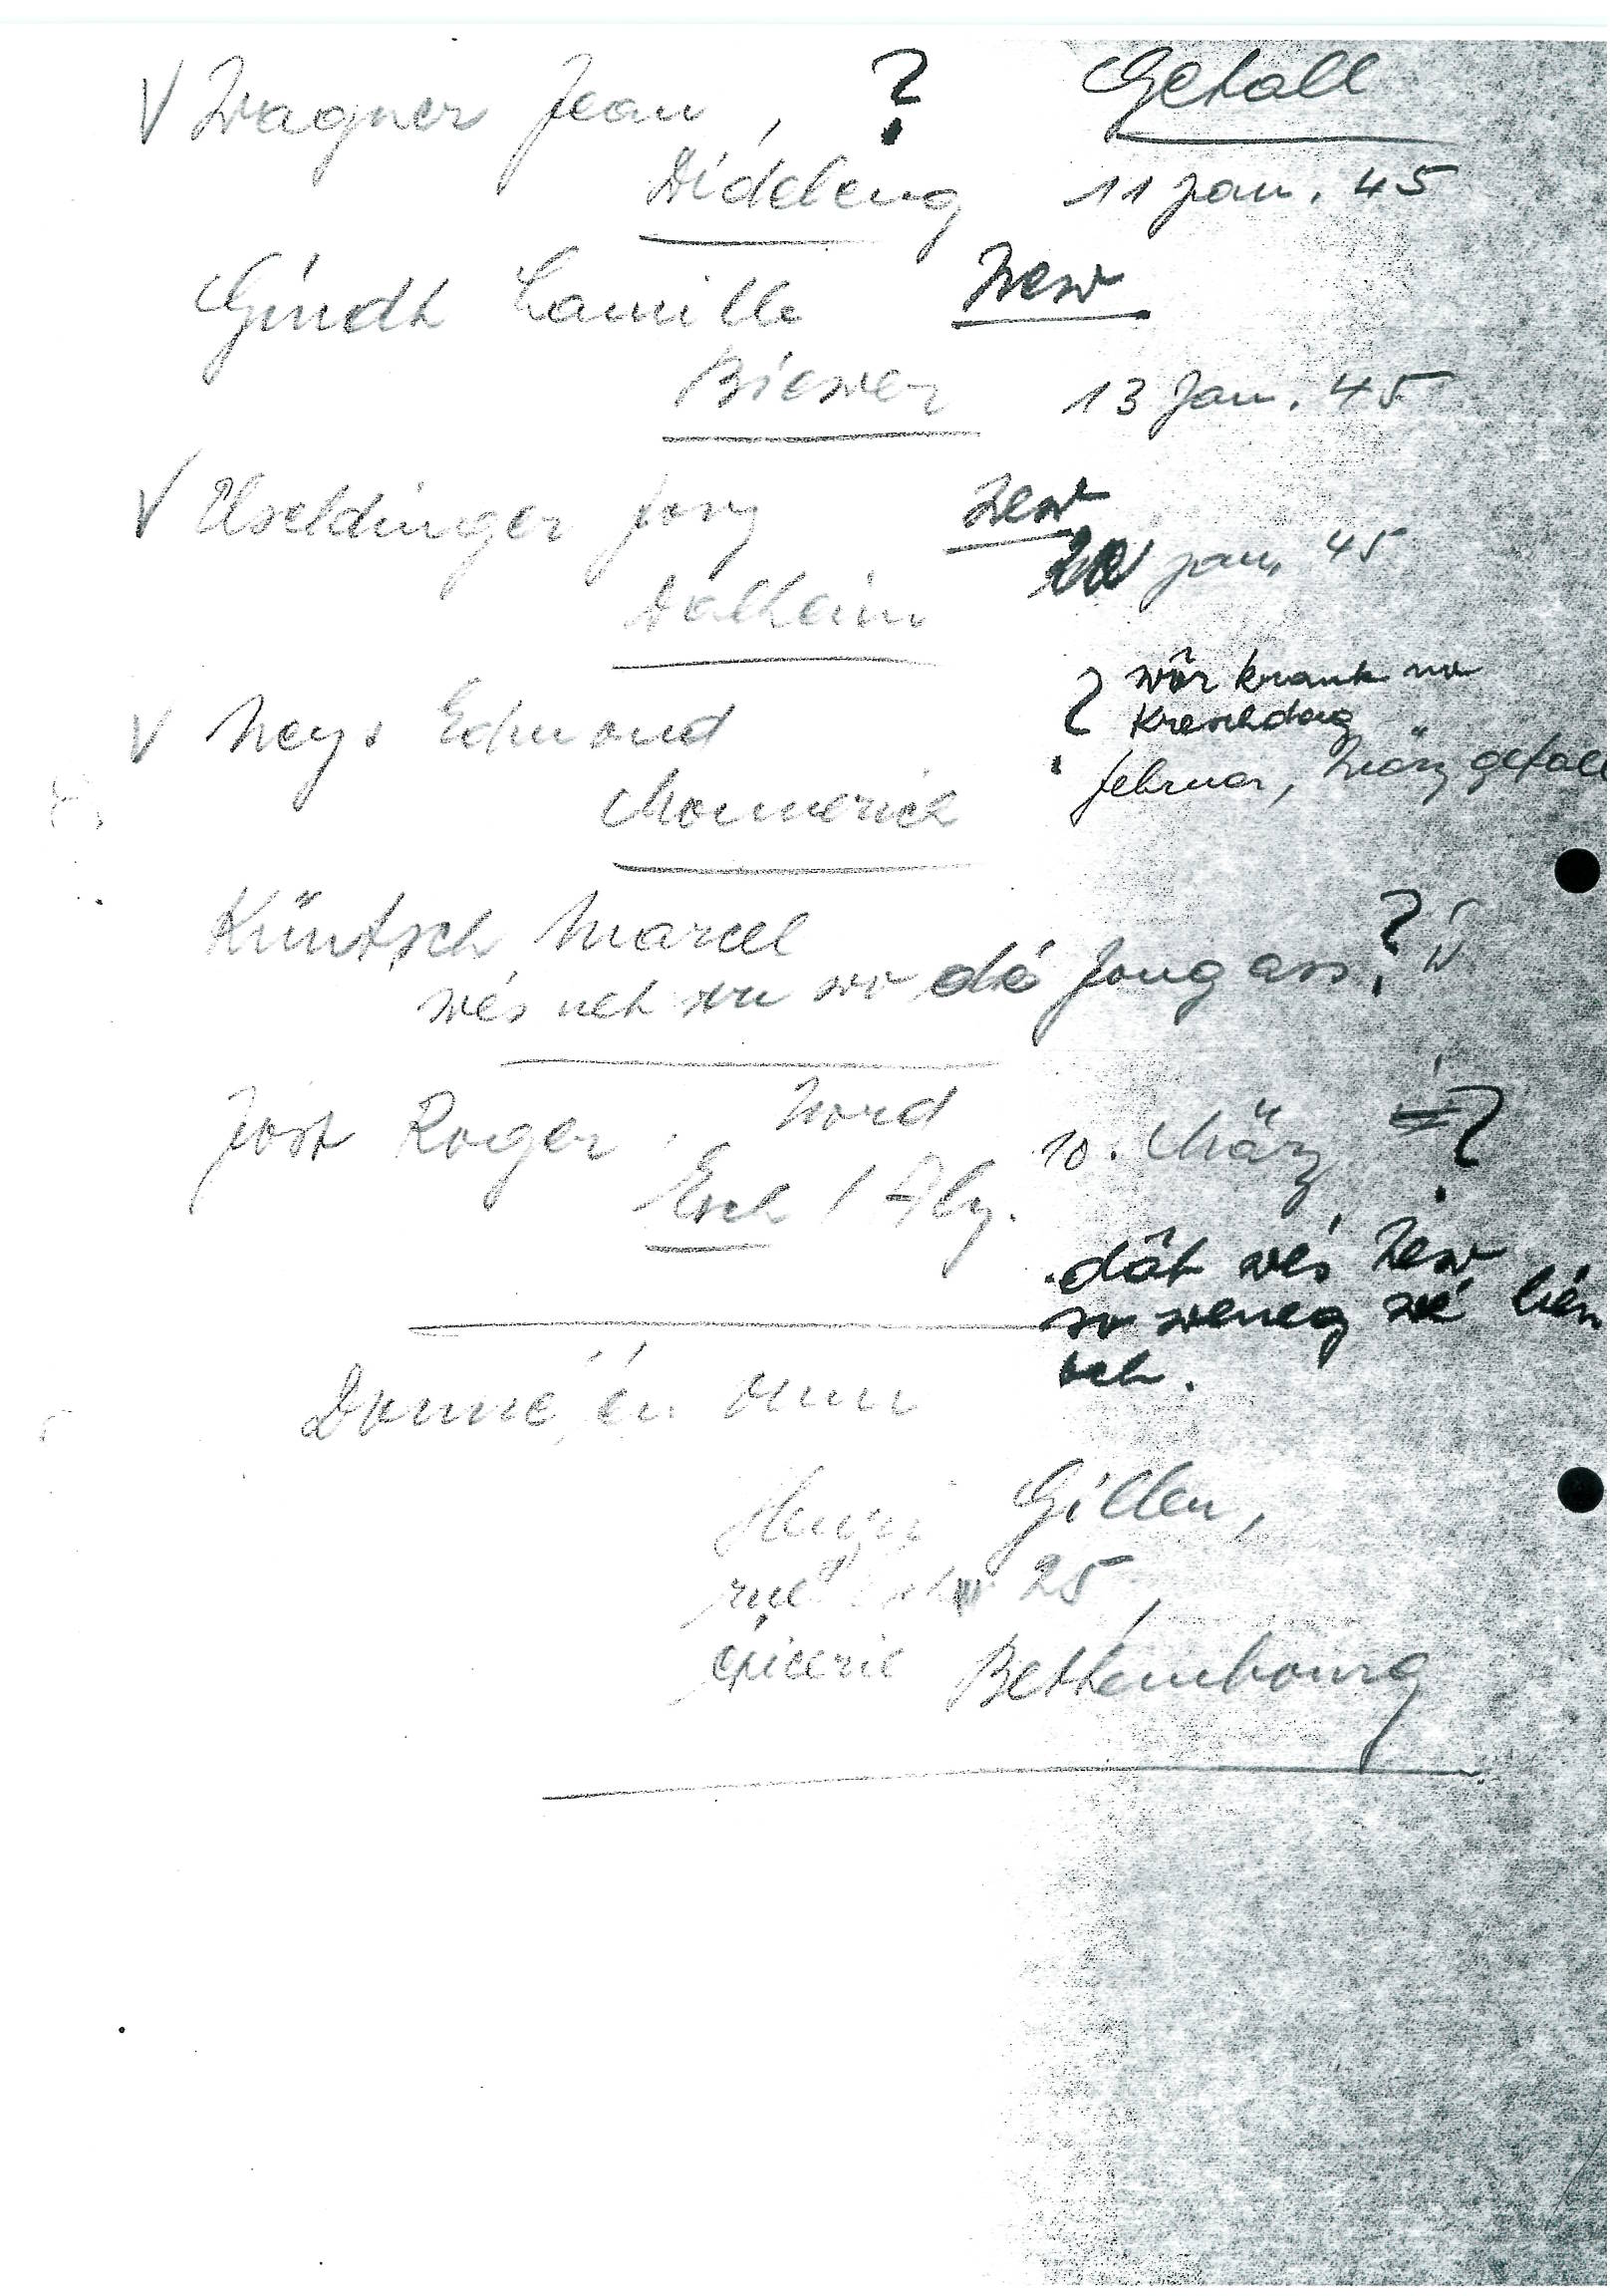 V Wagner Jean, ? Gefall
Diddeleng 11 Jan. 45
Gindt Camille Zew
Biewer 13 Jan. 45
V Useldinger Josy Zew
Dalheim Jan. 45
V Neys Edmond ? wôr krank no
Kreschdag
Mommerich februar, März gefall
Küntsch Marcel ?
wés net wu wo dé Jong ass
Jost Roger, Nord 10. März ?
Esch / Alz.
dât wés Zew
so weneg wé
ech.
Donné én
Henri Gillen,
rue 25,
épicerie Bettembourg